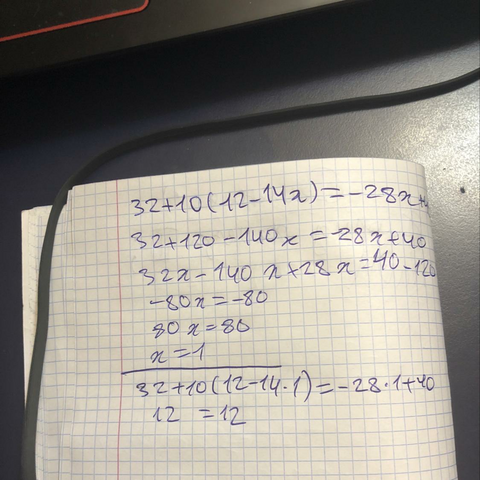 32+10(12-14x)=-28x+
32+120-140x=-28x+40
32x-140x+28x=40-120
-80x=-80
80x=80
x=1
32+10(12-14·1)=-28·1+40
12=12